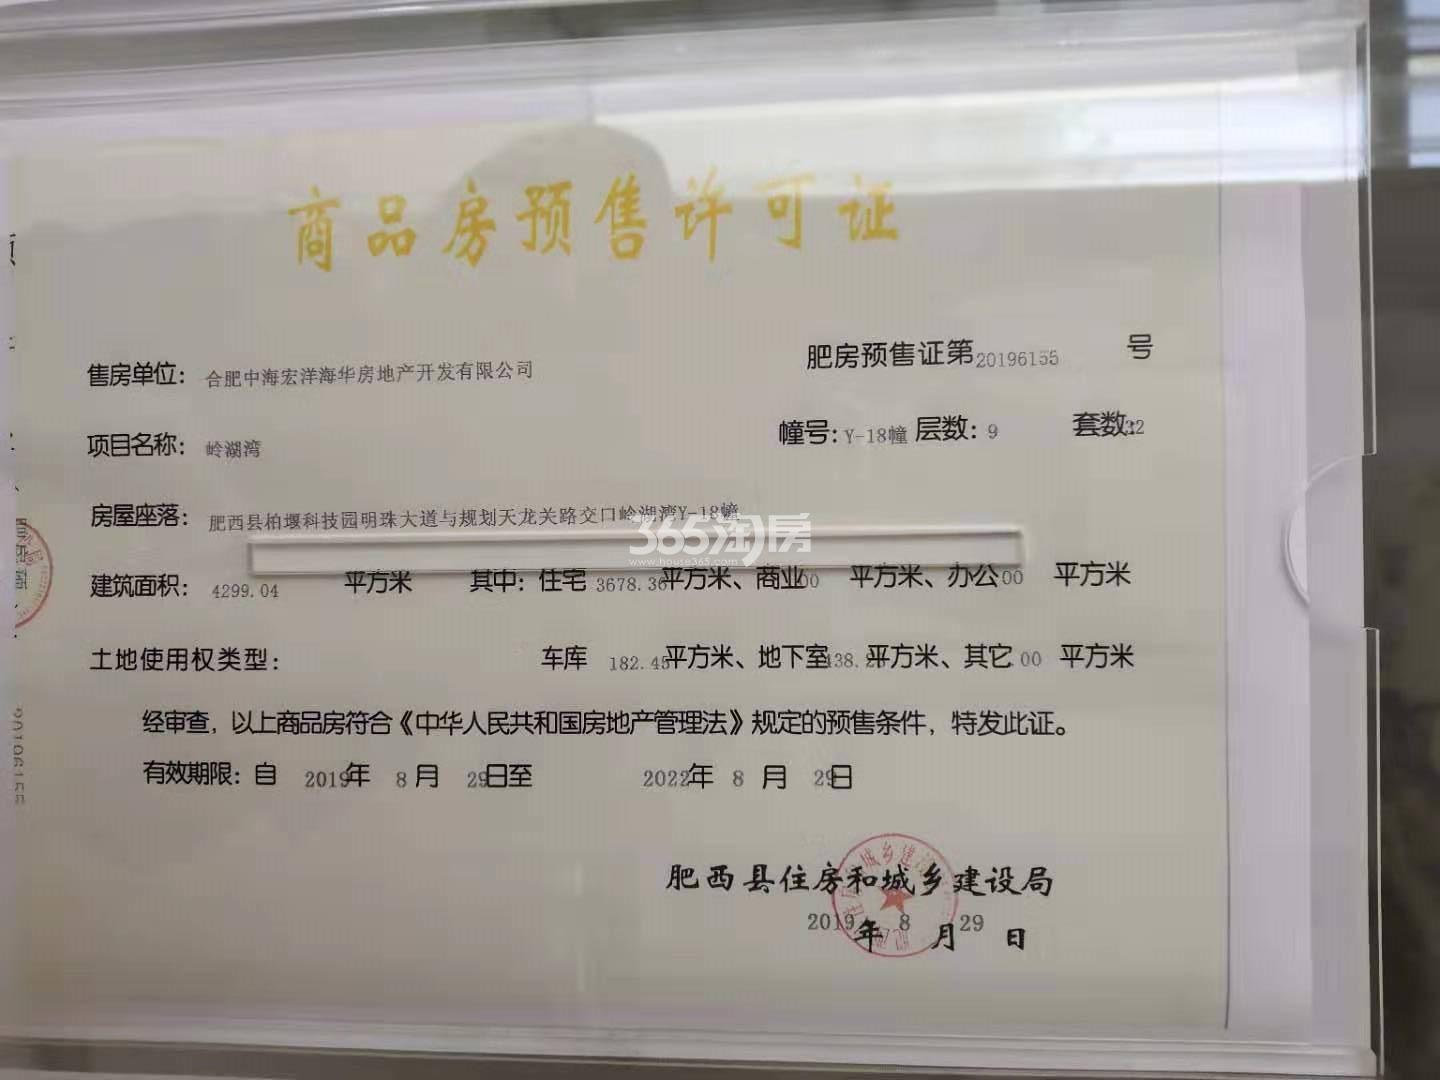 商品房预售许可证
肥房预售证第20196155号
售房单位：合肥中海宏洋海华房地产开发有限公司
幢号：Y-18幢 层数：9 套数：32
项目名称：岭湖湾
房屋座落：肥西县柏堰科技园明珠大道与规划天龙关路交口岭湖湾Y-18幢
365淘房
www.house365.com
建筑面积：4299.04 平方米 其中：住宅 3678.36平方米、商业.00 平方米、办公.00 平方米
土地使用权类型： 车库 182.45平方米、地下室 平方米、其它.00 平方米
经审查，以上商品房符合《中华人民共和国房地产管理法》规定的预售条件，特发此证。
有效期限：自 2019年 8 月 29日至 2022年 8 月 29日
肥西县住房和城乡建设局
2019年 8 月 29 日
20196155